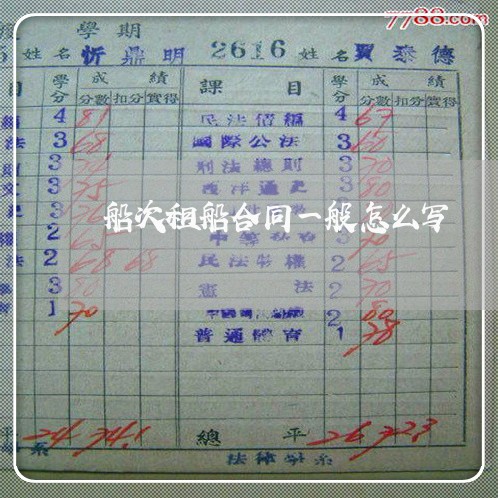 7788.com
學期
姓名 忻鼎明 2616 姓名 賈泰德
目 學分 成績 課目 學分 成績
分數 扣分 實得 分數 扣分 實得
4 81 民法債編 4 67
法 3 68 國際公法 3 60
3 刑法總則 3 70
3 75 西洋通史 3 80
3
船次租船合同一般怎么写
2 3 70
法 2 68 68 民法物權 2 65
3 80 憲法 2 70
1 70 2 80
普通體育 1 78
平 24 74.1 總平 26 72.3
系 法律學系